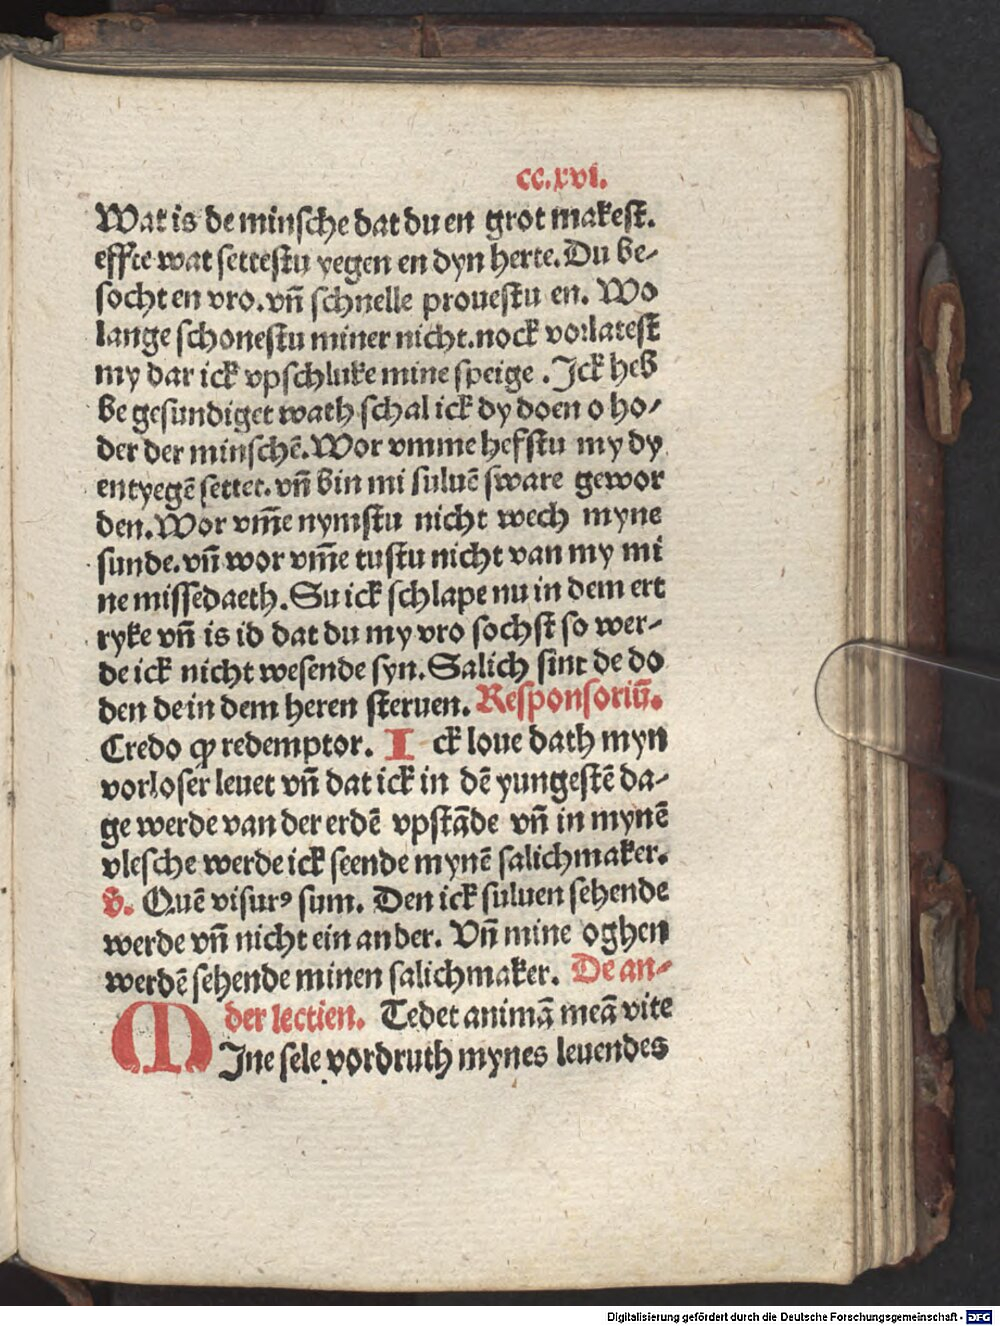 cc.xvi.
Wat is de minsche dat du en grot makest.
effte wat settestu yegen en dyn herte. Du be-
socht en vro. vn̄ schnelle prouestu en. Wo
lange schonestu miner nicht. nock vorlatest
my dar ick vpschluke mine speige . Ick heb
be gesundiget wath schal ick dy doen o ho-
der der minschē. Wor vmme hefstu my dy
entyegē settet. vn̄ bin mi suluē sware gewor
den. Wor vm̄e nymstu nicht wech myne
sunde. vn̄ wor vm̄e tustu nicht van my mi
ne missedaeth. Su ick schlape nu in dem ert
ryke vn̄ is id dat du my vro sochst so wer-
de ick nicht wesende syn. Salich sint de do
den de in dem heren steruen. Responsoriū.
Credo ꝙ redemptor. I ck loue dath myn
vorloser leuet vn̄ dat ick in dē yungestē da-
ge werde van der erdē vpstāde vn̄ in mynē
vlesche werde ick seende mynē salichmaker.
v. Quē visurꝰ sum. Den ick suluen sehende
werde vn̄ nicht ein ander. Vn̄ mine oghen
werdē sehende minen salichmaker. De an-
der lectien. Tedet animā meā vite
MIne sele vordruth mynes leuendes
Digitalisierung gefördert durch die Deutsche Forschungsgemeinschaft - DFG